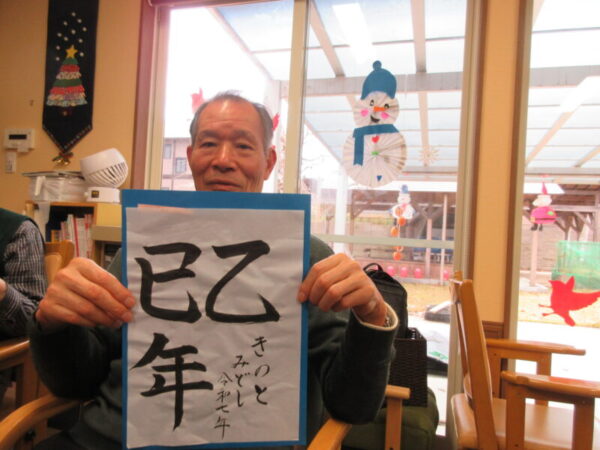 乙
巳年
きのと
みどし
令和七年